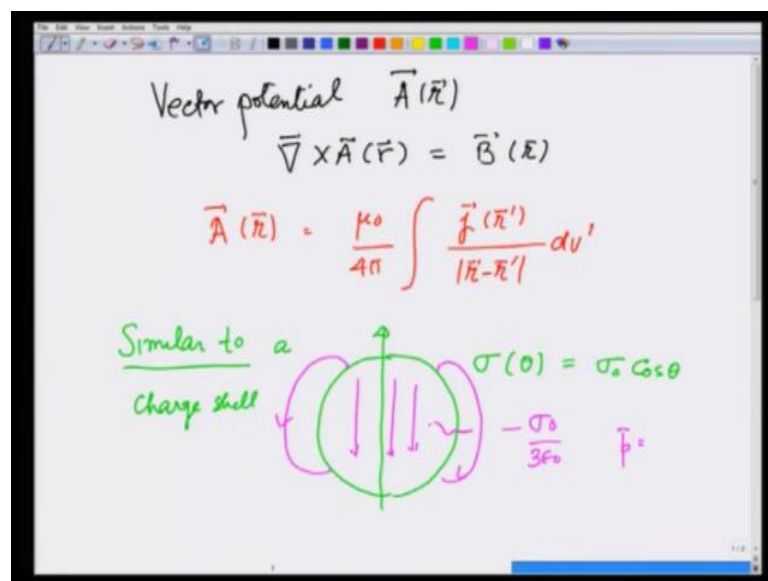 File Edit View Insert Actions Tools Help
Vector potential $\vec{A}(\vec{r})$
$\vec{\nabla} \times \vec{A}(\vec{r}) = \vec{B}(\vec{r})$
$\vec{A}(\vec{r}) = \frac{\mu_0}{4\pi} \int \frac{\vec{j}(\vec{r}')}{|\vec{r}-\vec{r}'|} dv'$
Similar to a
charge shell
$\sigma(\theta) = \sigma_0 \cos\theta$
$-\frac{\sigma_0}{3\epsilon_0}$ $\vec{p} =$
1/2
1